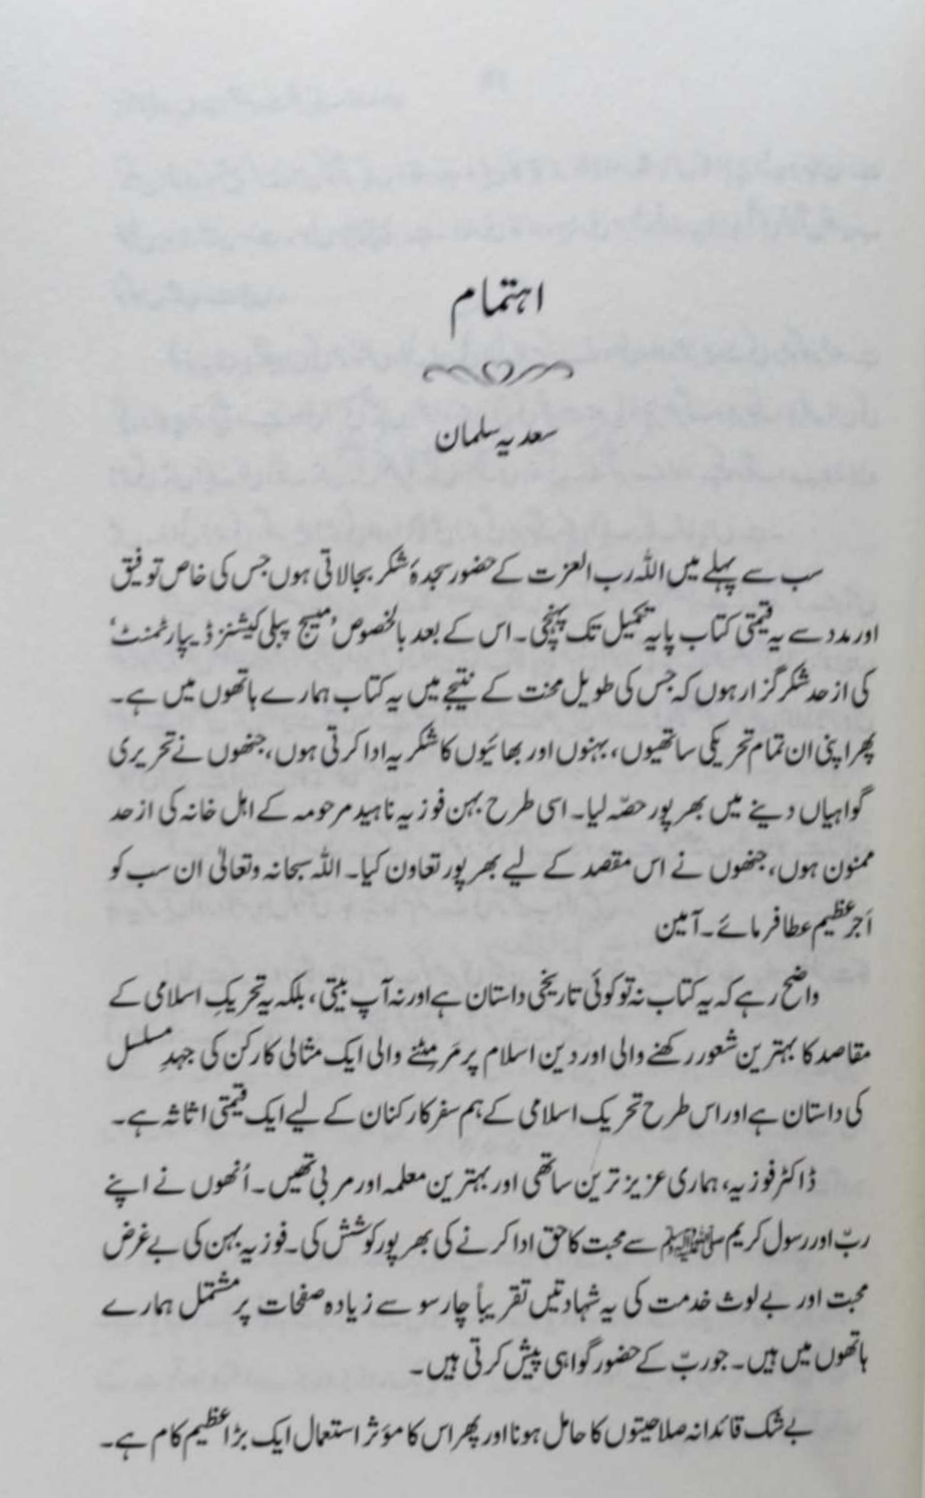 اہتمام
سعدیہ سلمان
سب سے پہلے میں اللہ رب العزت کے حضور سجدۂ شکر بجالاتی ہوں جس کی خاص توفیق
اور مدد سے یہ قیمتی کتاب پایہ تکمیل تک پہنچی۔ اس کے بعد بالخصوص ’میسج پبلی کیشنز ڈیپارٹمنٹ‘
کی از حد شکر گزار ہوں کہ جس کی طویل محنت کے نتیجے میں یہ کتاب ہمارے ہاتھوں میں ہے۔
پھر اپنی ان تمام تحریکی ساتھیوں، بہنوں اور بھائیوں کا شکریہ ادا کرتی ہوں، جنھوں نے تحریری
گواہیاں دینے میں بھرپور حصّہ لیا۔ اسی طرح بہن فوزیہ ناہید مرحومہ کے اہل خانہ کی از حد
ممنون ہوں، جنھوں نے اس مقصد کے لیے بھرپور تعاون کیا۔ اللہ سبحانہ وتعالیٰ ان سب کو
اَجرِ عظیم عطا فرمائے۔ آمین
واضح رہے کہ یہ کتاب نہ تو کوئی تاریخی داستان ہے اور نہ آپ بیتی، بلکہ یہ تحریکِ اسلامی کے
مقاصد کا بہترین شعور رکھنے والی اور دین اسلام پر مَر مِٹنے والی ایک مثالی کارکن کی جہدِ مسلسل
کی داستان ہے اور اس طرح تحریک اسلامی کے ہم سفر کارکنان کے لیے ایک قیمتی اثاثہ ہے۔
ڈاکٹر فوزیہ، ہماری عزیز ترین ساتھی اور بہترین معلمہ اور مربی تھیں۔ اُنھوں نے اپنے
ربّ اور رسول کریم ﷺ سے محبت کا حق ادا کرنے کی بھرپور کوشش کی۔ فوزیہ بہن کی بے غرض
محبت اور بے لوث خدمت کی یہ شہادتیں تقریباً چار سو سے زیادہ صفحات پر مشتمل ہمارے
ہاتھوں میں ہیں۔ جو ربّ کے حضور گواہی پیش کرتی ہیں۔
بے شک قائدانہ صلاحیتوں کا حامل ہونا اور پھر اس کا مؤثر استعمال ایک بڑا عظیم کام ہے۔